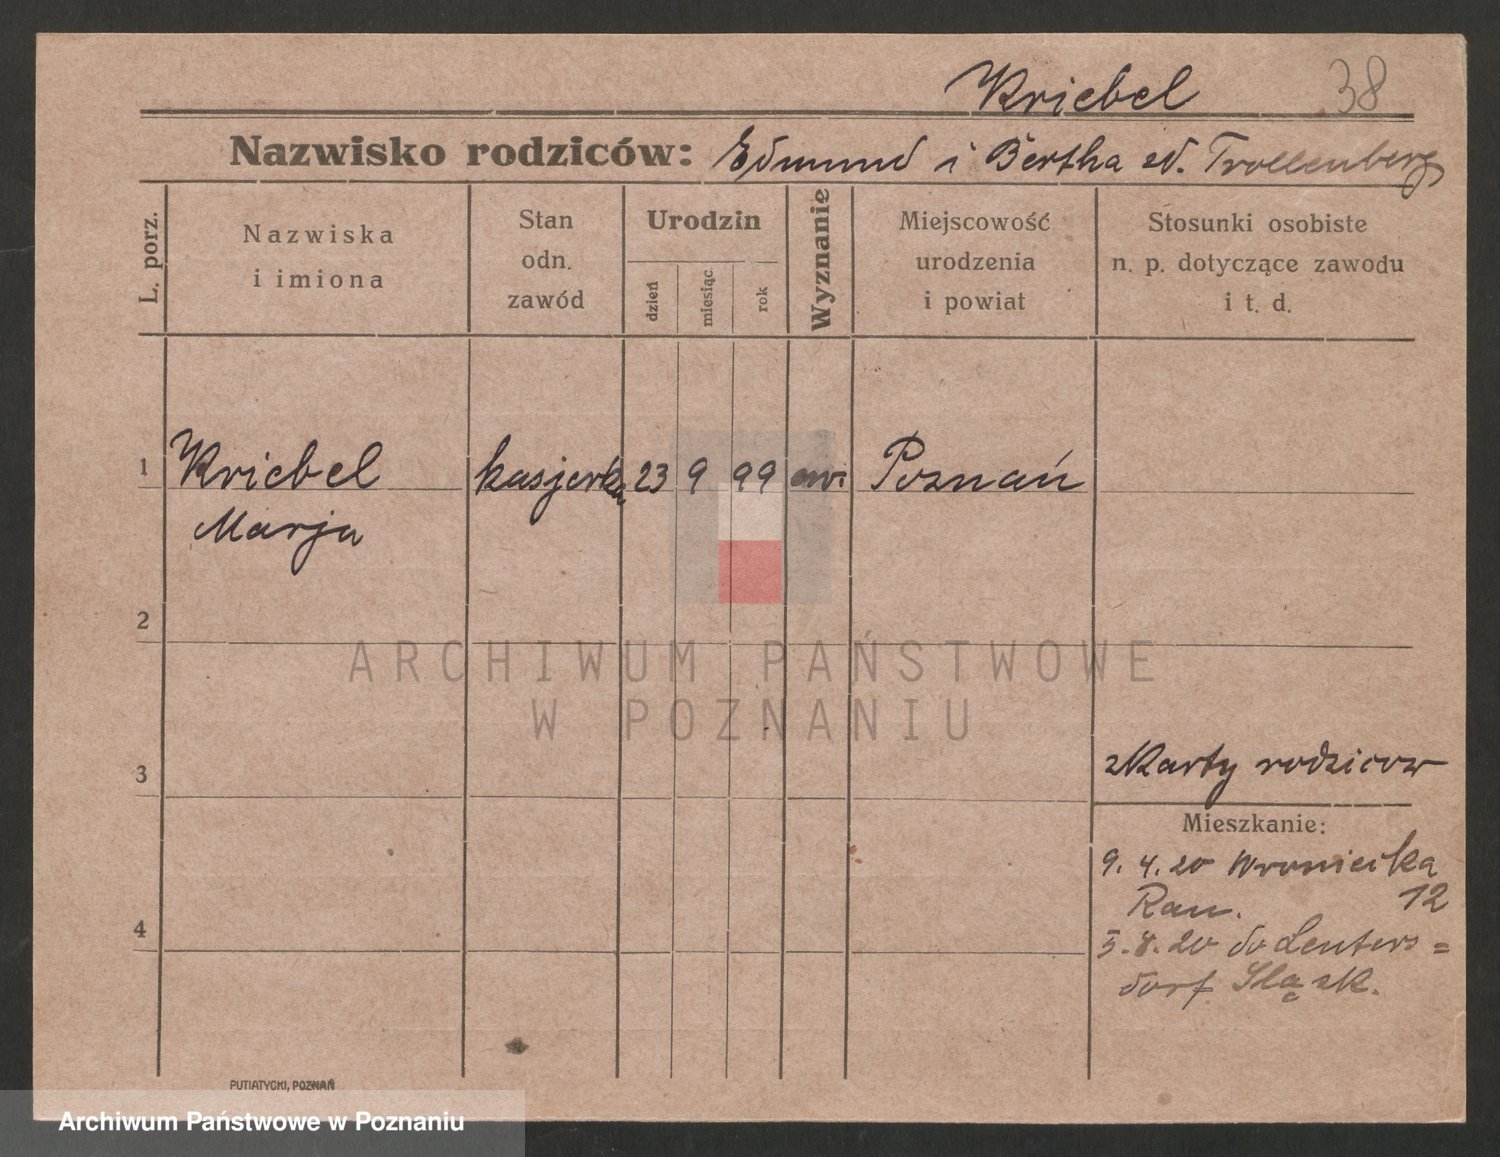 Kriebel 38
Nazwisko rodziców: Edmund i Bertha zd. Trollenberg
L. porz.
Nazwiska
i imiona
Stan
odn.
zawód
Urodzin
dzień
miesiąc
rok
Wyznanie
Miejscowość
urodzenia
i powiat
Stosunki osobiste
n. p. dotyczące zawodu
i t. d.
1 Kriebel kasjerka 23 9 99 ew. Poznań
Marja
2
ARCHIWUM PAŃSTWOWE
W POZNANIU
3
z karty rodzicow
Mieszkanie:
9. 4. 20 Wroniecka
12
4
5. 8. 20 do Leuters=
dorf Śląsk.
PUTIATYCKI, POZNAŃ
Archiwum Państwowe w Poznaniu